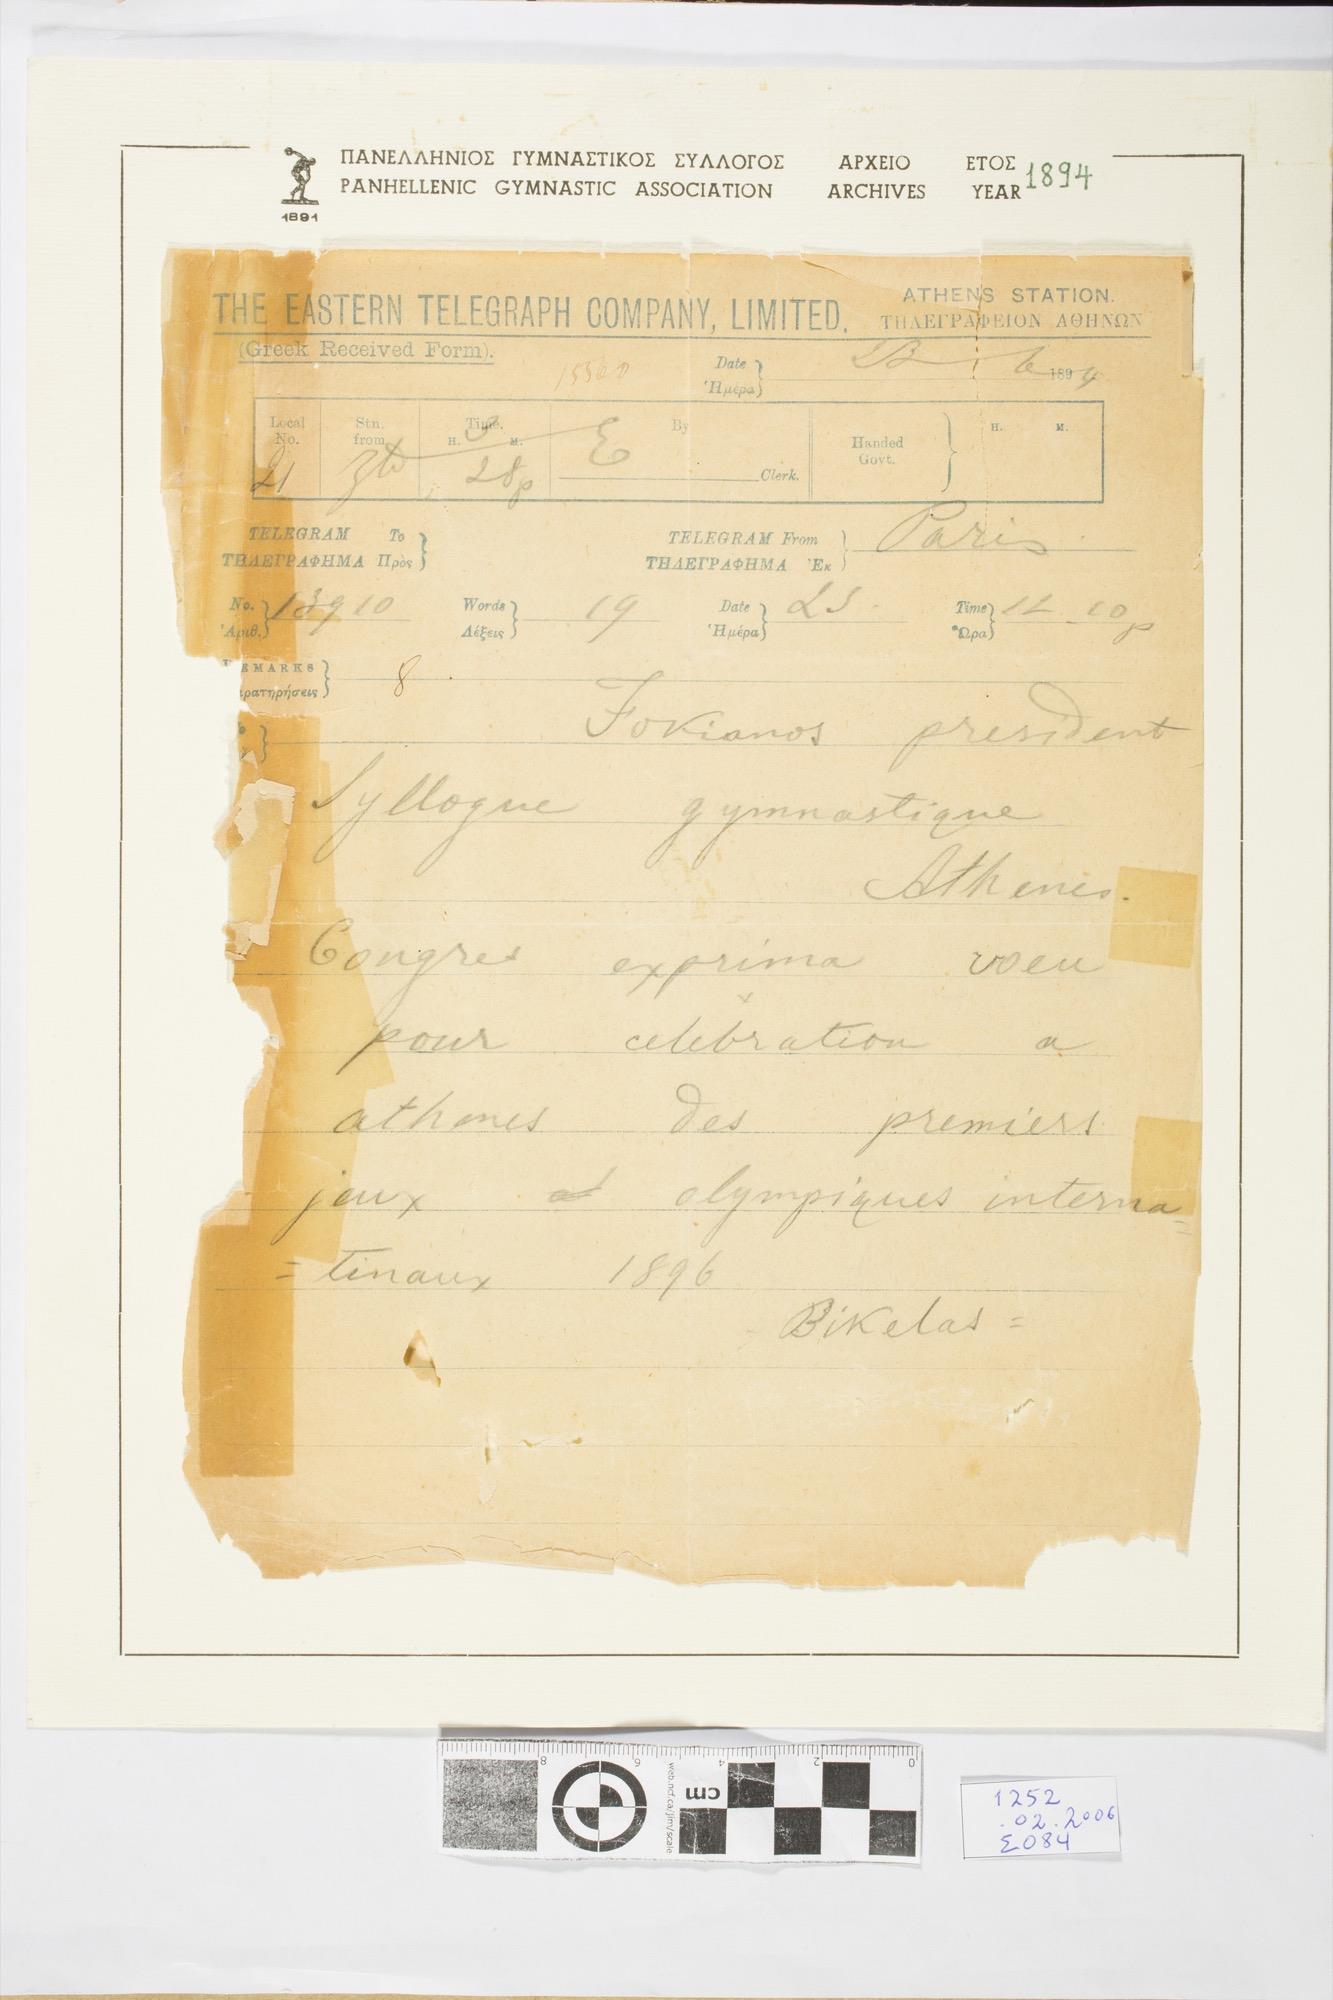 ΠΑΝΕΛΛΗΝΙΟΣ ΓΥΜΝΑΣΤΙΚΟΣ ΣΥΛΛΟΓΟΣ ΑΡΧΕΙΟ ΕΤΟΣ
PANHELLENIC GYMNASTIC ASSOCIATION ARCHIVES YEAR 1894
1891
THE EASTERN TELEGRAPH COMPANY, LIMITED.
ATHENS STATION.
ΤΗΛΕΓΡΑΦΕΙΟΝ ΑΘΗΝΩΝ
(Greek Received Form).
Date
Ἡμέρα
6 1894
Local No. Stn. from Time. H. M. By Clerk. Handed Govt. H. M.
21 3 28p E
TELEGRAM To
ΤΗΛΕΓΡΑΦΗΜΑ Πρὸς
TELEGRAM From Paris
ΤΗΛΕΓΡΑΦΗΜΑ Ἐκ
No. 13910 Words 19 Date 23 Time 12 10p
Ἀριθ. Λέξεις Ἡμέρα Ὥρα
EMARKS 8
ρατηρήσεις
Fokianos president
Syllogue gymnastique
Athenes.
Congres exprima voeu
pour celebration a
athenes des premiers
jeux olympiques interna=
=tinaux 1896
Bikelas =
0 2 4 6 8
cm
web.ncf.ca/jim/scale
1252
.02.2006
Σ084